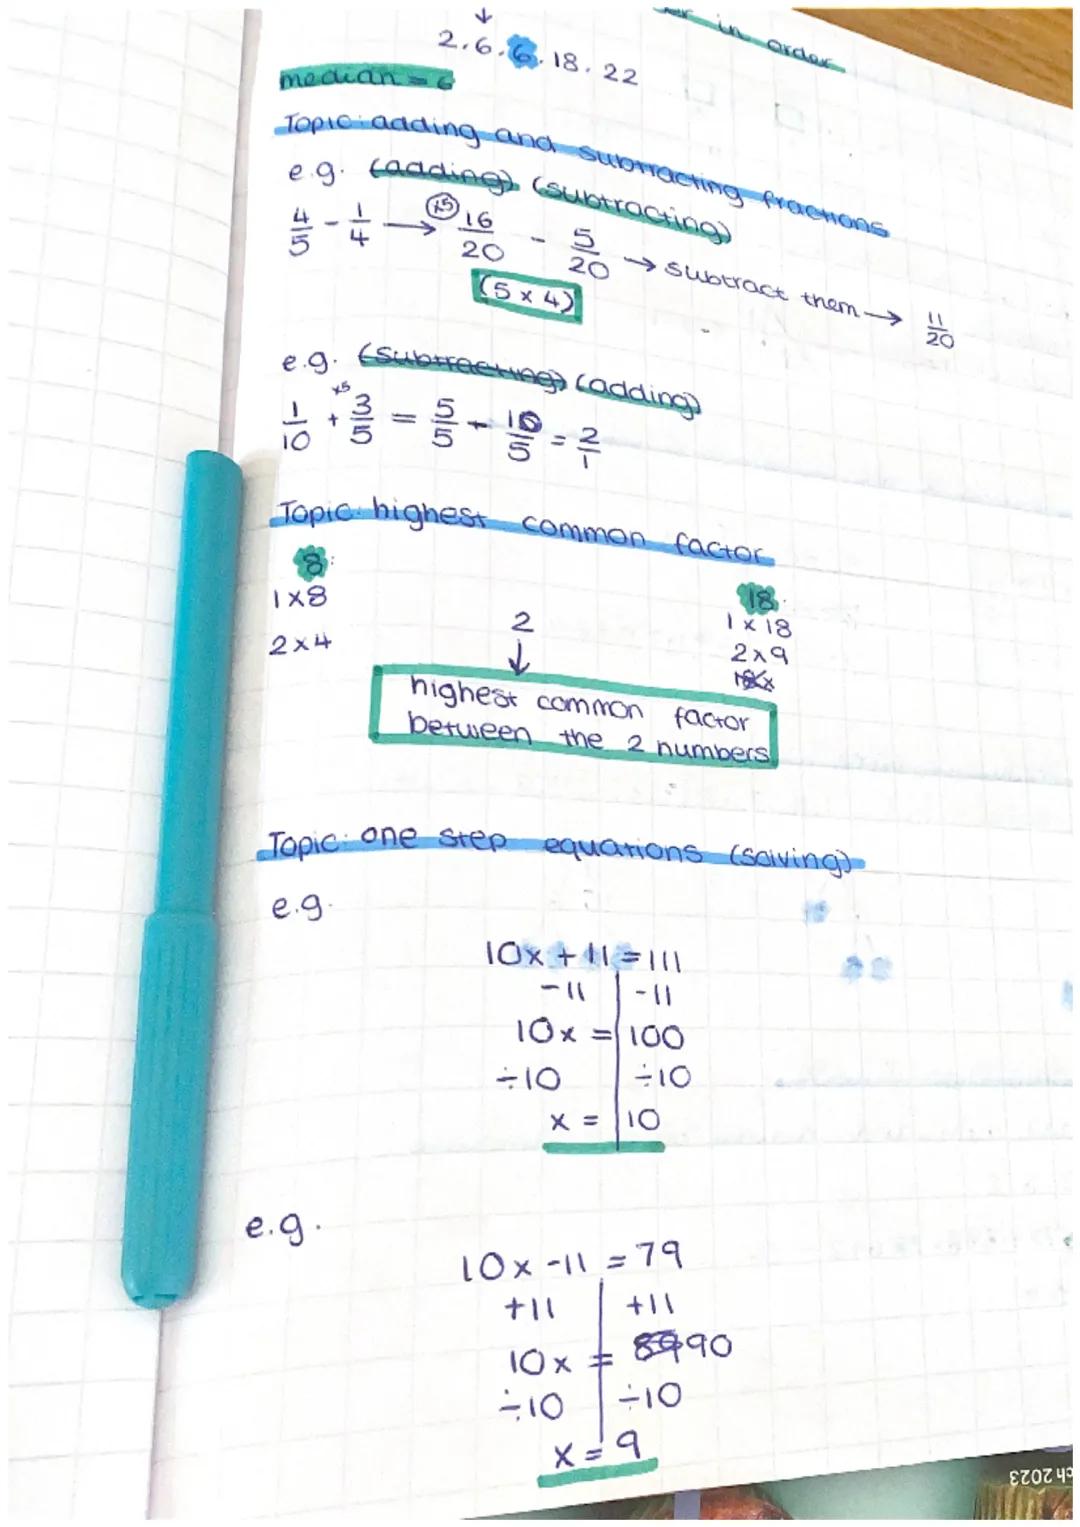 in order
2.6.6.18.22
median = 6
Topic: adding and subtracting fractions
e.g. (adding) (subtracting)
4/5 - 1/4 → (x5) 16/20 - 5/20 → subtract them → 11/20
(5 x 4)
e.g. (subtracting) (adding)
1/10 + x5 3/5 = 5/5 + 10/5 = 2/1
Topic: highest common factor
8:
1x8
2x4
2
↓
18:
1 x 18
2x9
highest common factor
between the 2 numbers
Topic: one step equations (solving)
e.g.
10x + 11 = 111
-11 | -11
10x = 100
÷10 | ÷10
x = 10
e.g.
10x -11 = 79
+11 | +11
10x = 90
÷10 | ÷10
x = 9
ch 2023